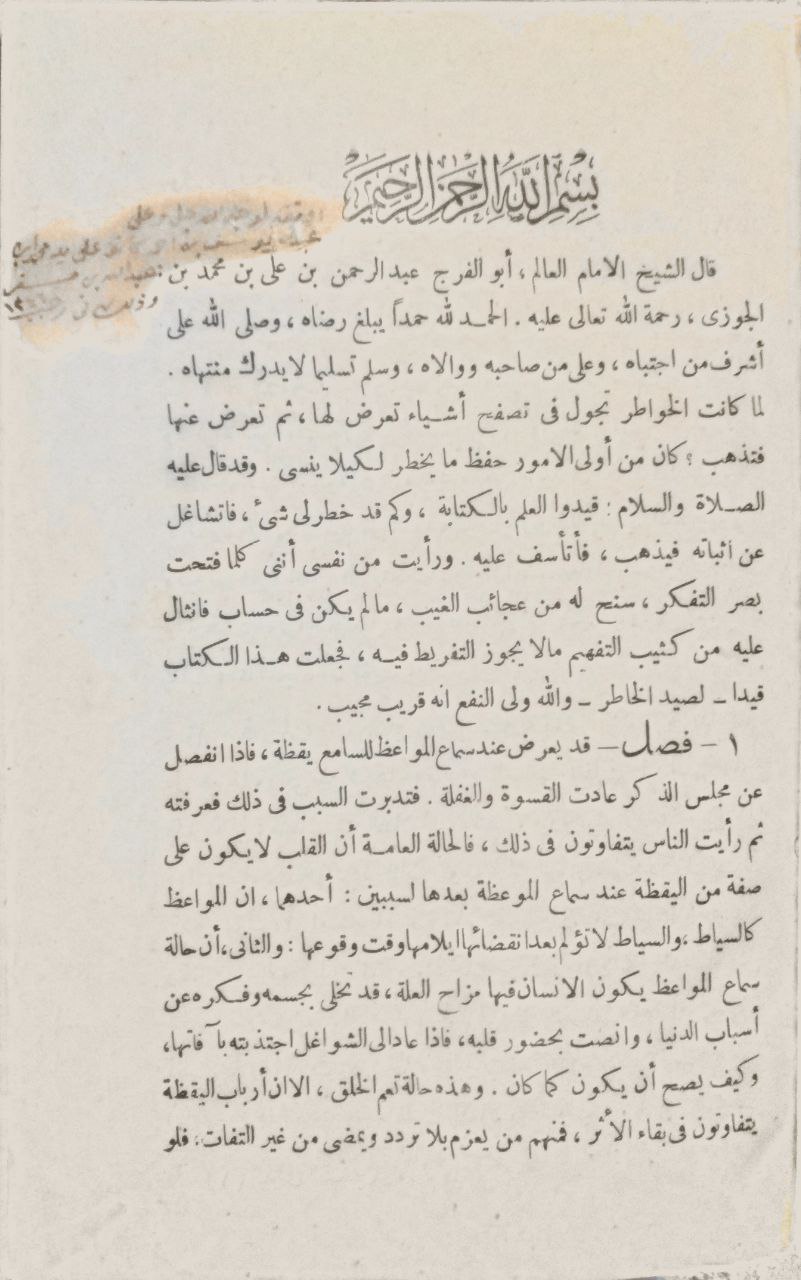 بسم الله الرحمن الرحيم
قال الشيخ الامام العالم ، أبو الفرج عبد الرحمن بن على بن محمد بن
الجوزى ، رحمة الله تعالى عليه . الحمـد لله حمداً يبلغ رضاه ، وصلى الله على
أشرف من اجتباه ، وعلى من صاحبه ووالاه ، وسلم تسليما لا يدرك منتهاه .
لما كانت الخواطر تجول فى تصفح أشـياء تعرض لها ، ثم تعرض عنها
فتذهب ؟ كان من أولى الامور حفظ ما يخطر لـكيلا ينسى . وقد قال عليه
الصـلاة والسلام : قيدوا العلم بالـكتابة ، وكم قد خطر لى شئ ، فاتشاغل
عن اثباته فيذهب ، فأتأسف عليه . ورأيت من نفسى أننى كلما فتحت
بصر التفـكر ، سنح له من عجائب الغيب ، مالم يكن فى حساب فانثال
عليه من كـثيب التفهيم مالا يجوز التفريط فيـه ، فجعلت هـذا الـكتاب
قيدا ـ لصيد الخاطر ـ والله ولى النفع انه قريب مجيب .
١ – فصل – قد يعرض عند سماع المواعظ للسامع يقظة ، فاذا انفصل
عن مجلس الذكر عادت القسوة والغفلة . فتدبرت السبب فى ذلك فعرفته
ثم رأيت الناس يتفاوتون فى ذلك ، فالحالة العامـة أن القلب لا يكون على
صفة من اليقظة عند سماع الموعظة بعدها لسببين : أحدهما ، ان المواعظ
كالسياط ، والسياط لا تؤلم بعد انقضائها ايلامها وقت وقوعها : والثانى ، أن حالة
سماع المواعظ يكون الانسان فيها مزاح العلة ، قد تخلى بجسمه وفـكره عن
أسباب الدنيا ، وانصت بحضور قلبه ، فاذا عاد الى الشواغل اجتذبته بآفاتها ،
وكيف يصح أن يـكون كما كان . وهذه حالة تعم الخلق ، الا ان أرباب اليقظة
يتفاوتون فى بقاء الأثر ، فمنهم من يعزم بلا تردد ويمضى من غير التفات ، فلو